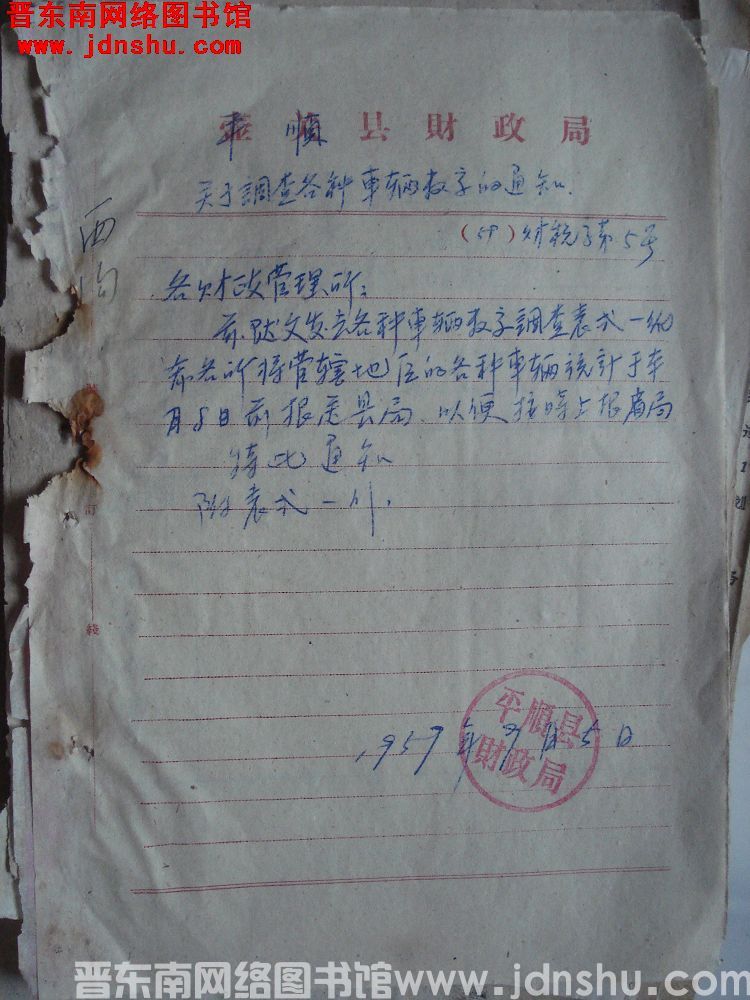 晋东南网络图书馆
www.jdnshu.com
平順县財政局
关于調查各种車辆数字的通知.
(59)财税字第5号
西沟
各财政管理所：
兹随文发去各种車辆数字調查表式一份
希各所将管辖地区的各种車辆統計于本
月8日前报至县局.以便按時上报省局
特此通知
附表式一份.
訂
綫
1959年9月5日
平順县
財政局
晋东南网络图书馆www.jdnshu.com